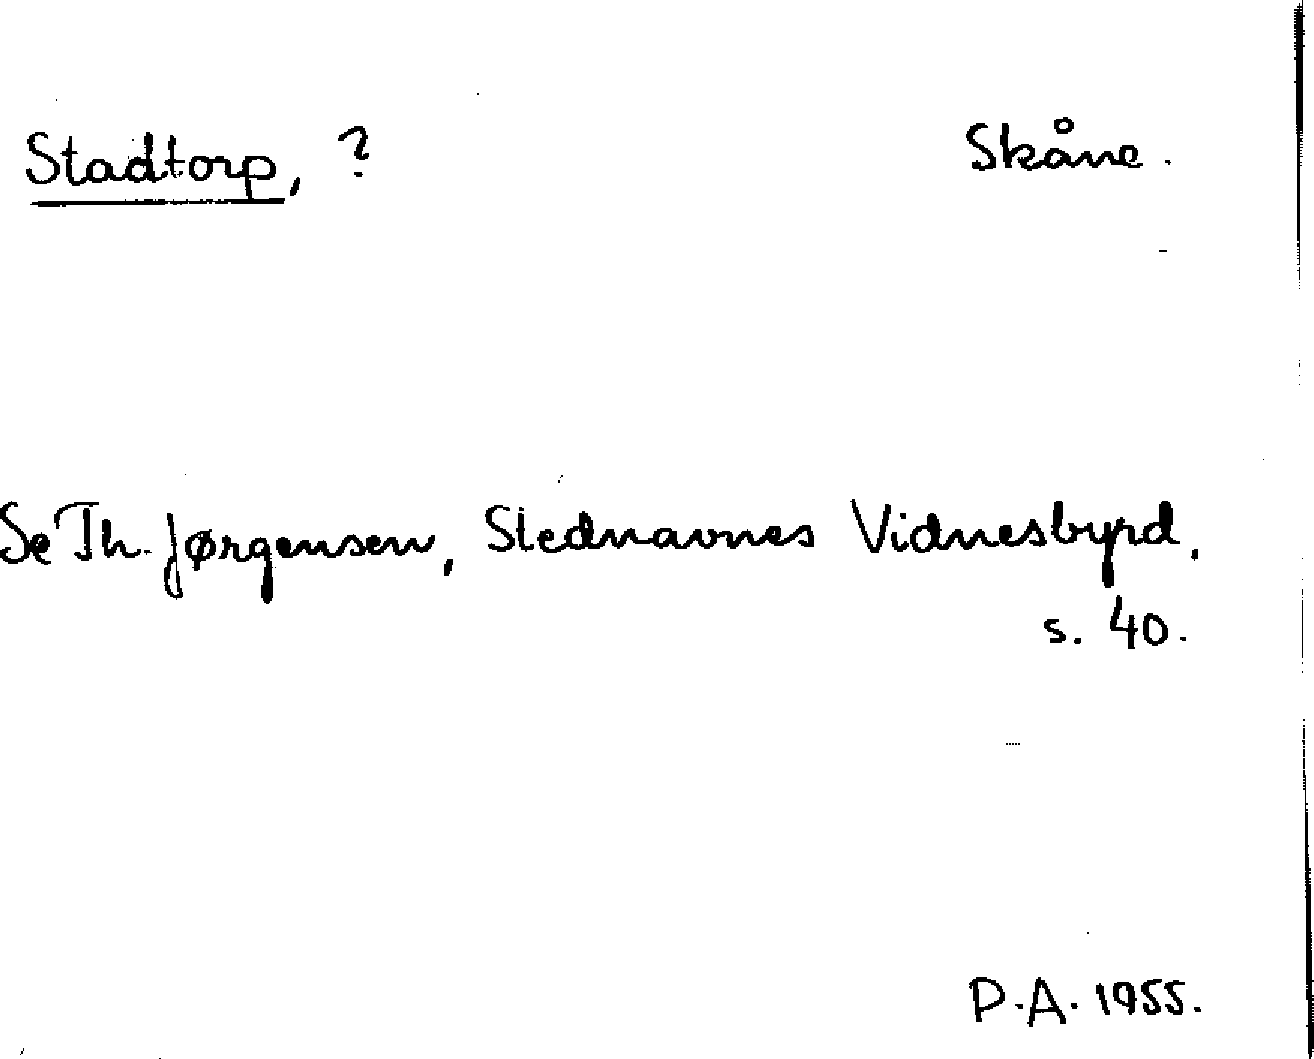 Stadtorp, ? Skåne.
Se Th. Jørgensen, Stednavnes Vidnesbyrd,
s. 40.
P.A. 1955.